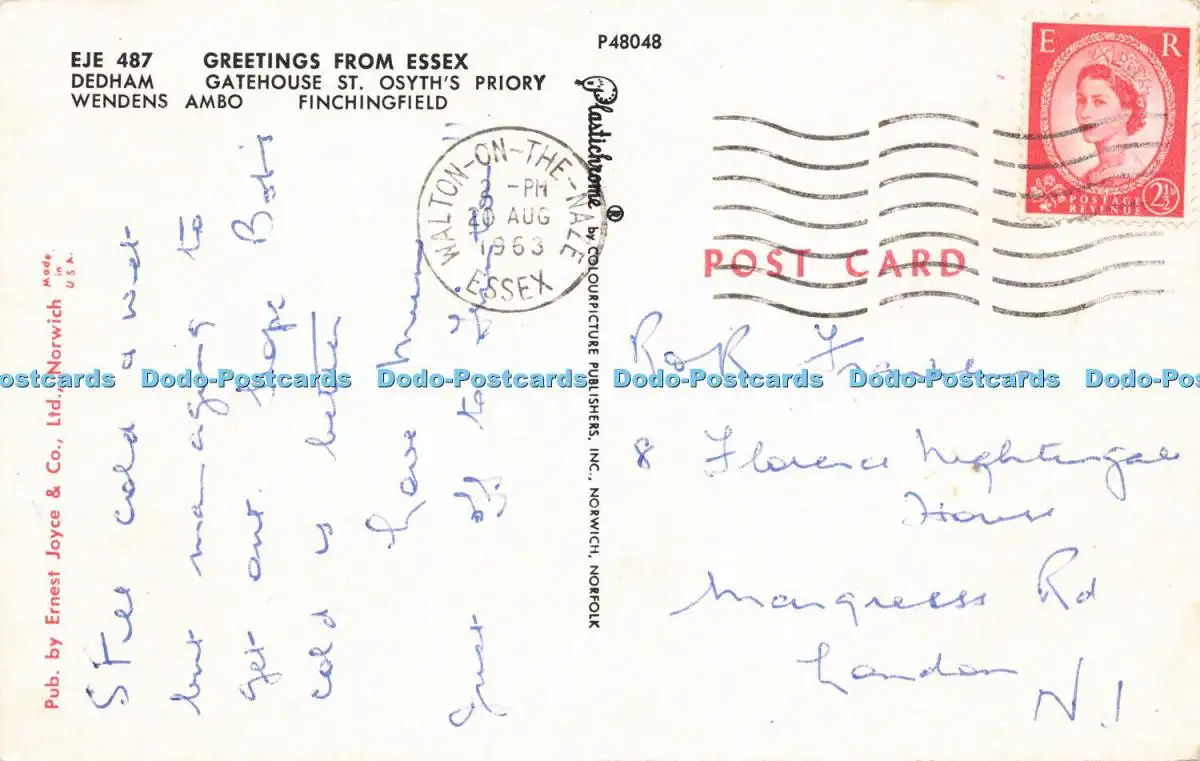 EJE 487 GREETINGS FROM ESSEX
DEDHAM GATEHOUSE ST. OSYTH'S PRIORY
WENDENS AMBO FINCHINGFIELD
P48048
E R
POSTAGE
REVENUE
2½D
WALTON-ON-THE-NAZE
-PM
20 AUG
1963
ESSEX
POST CARD
Plastichrome ® by COLOURPICTURE PUBLISHERS, INC., NORWICH, NORFOLK
Pub. by Ernest Joyce & Co., Ltd., Norwich
Made
in
U.S.A.
Still cold & wet
but managing to
get out. Hope
cold is better
Love Mum
just off to
R
8 Florence Nightingale
House
Rd
London
N.1
ostcards Dodo-Postcards Dodo-Postcards Dodo-Postcards Dodo-Postcards Dodo-Postc